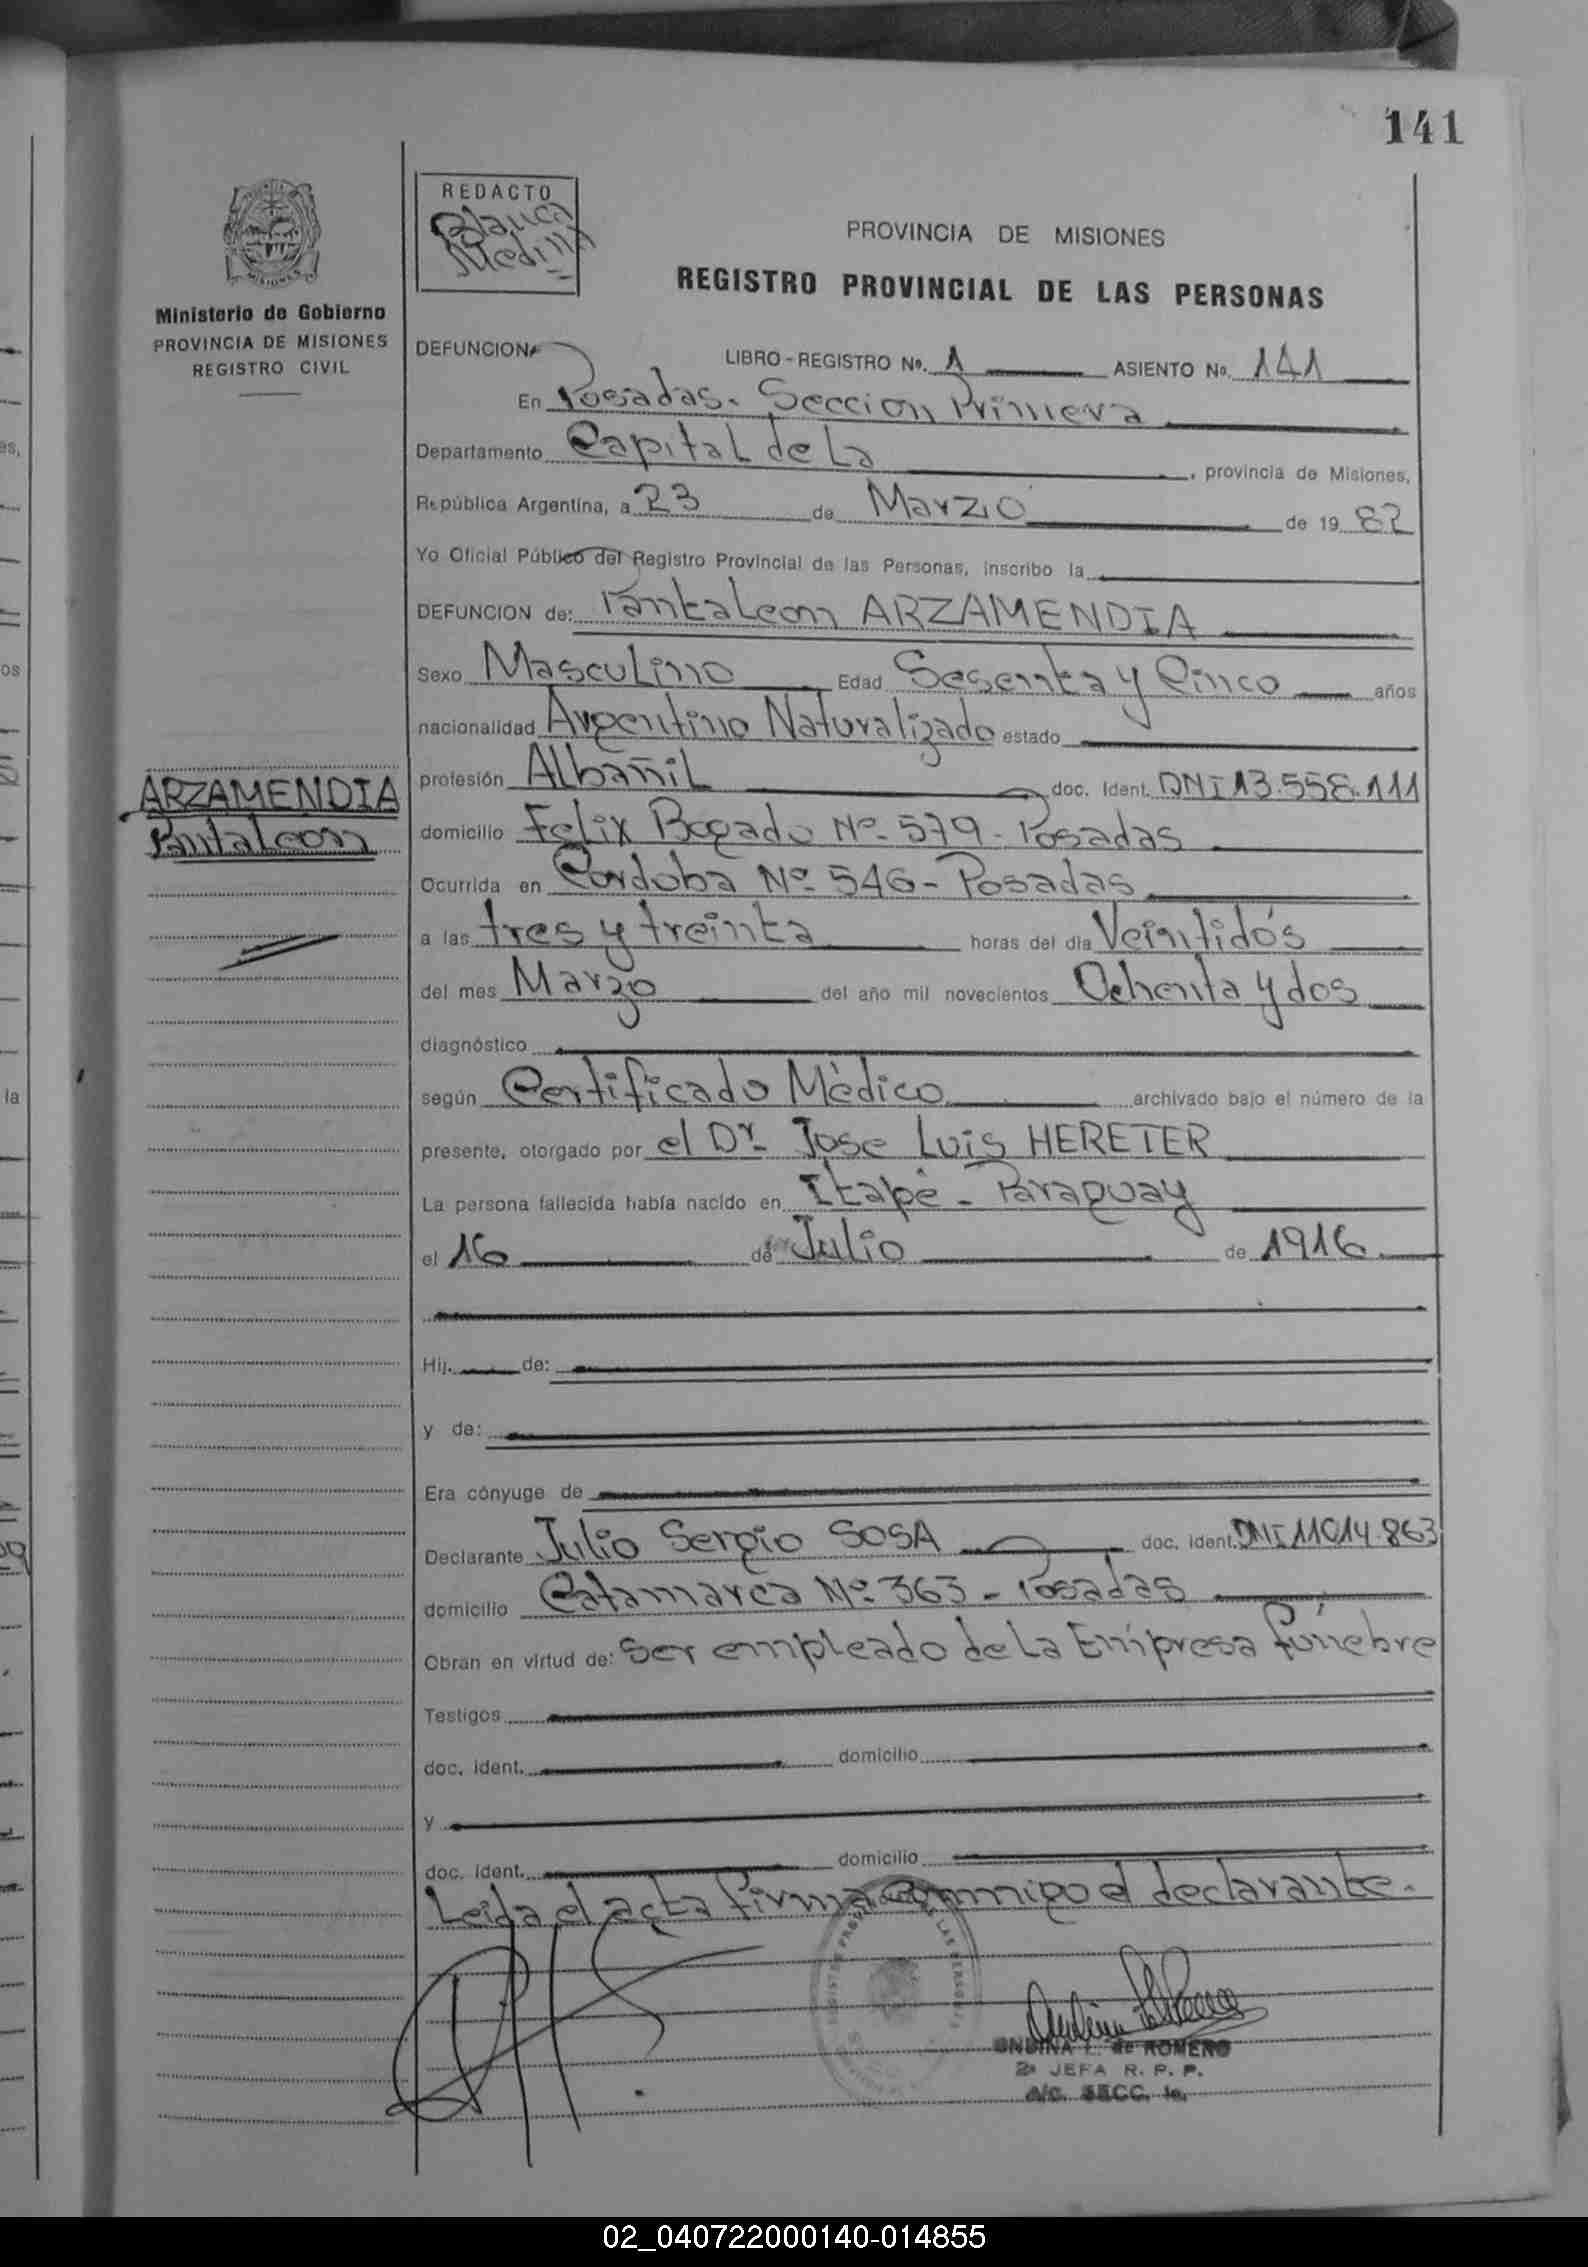 141
REDACTO
Blanca
Medina
PROVINCIA DE MISIONES
REGISTRO PROVINCIAL DE LAS PERSONAS
MISIONES
Ministerio de Gobierno
PROVINCIA DE MISIONES
REGISTRO CIVIL
DEFUNCION LIBRO - REGISTRO No. 1 ASIENTO No. 141
En Posadas. Seccion Primera
Departamento Capital de La, provincia de Misiones,
República Argentina, a 23 de Marzo de 19 82
Yo Oficial Público del Registro Provincial de las Personas, inscribo la
DEFUNCION de: Pantaleon ARZAMENDIA
Sexo Masculino Edad Sesenta y Cinco años
nacionalidad Argentino Naturalizado estado
profesión Albañil doc. Ident. DNI 13.558.111
ARZAMENDIA
Pantaleon
domicilio Felix Bogado Nº 579 - Posadas
Ocurrida en Cordoba Nº 546 - Posadas
a las tres y treinta horas del día Veintidós
del mes Marzo del año mil novecientos Ochenta y dos
diagnóstico
según Certificado Mèdico archivado bajo el número de la
presente, otorgado por el Dr. Jose Luis HERETER
La persona fallecida había nacido en Itapé - Paraguay
el 16 de Julio de 1916
Hij. de:
y de:
Era cónyuge de
Declarante Julio Sergio SOSA doc. ident. DNI 11014.863
domicilio Catamarca Nº 363 - Posadas
Obran en virtud de: Ser empleado de La Empresa fúnebre
Testigos
doc. ident. domicilio
y
doc. ident. domicilio
Leida el acta firma conmigo el declarante.
ONDINA L. de ROMERO
2ª JEFA R. P. P.
a/c. SECC. 1a.
02_040722000140-014855